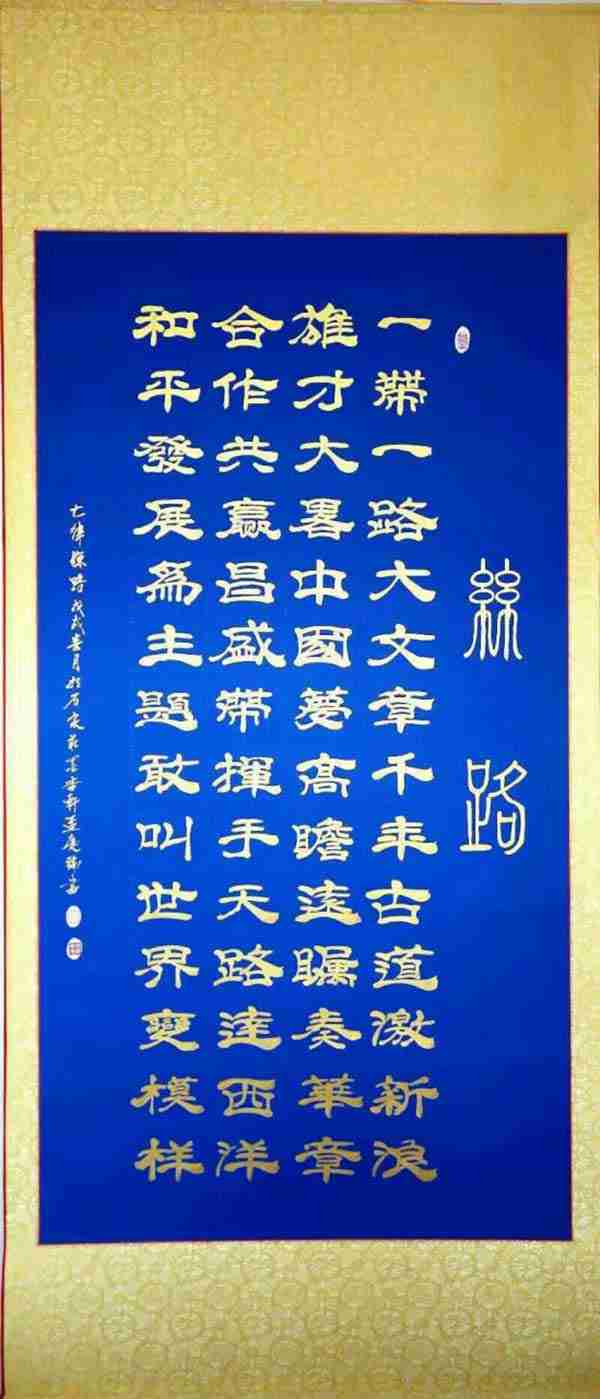 絲路
一帶一路大文章千年古道激新浪
雄才大畧中國夢高瞻遠矚奏華章
合作共贏昌盛帶揮手天路達西洋
和平發展為主題敢叫世界變模樣
七律絲路戊戌春月於石家莊